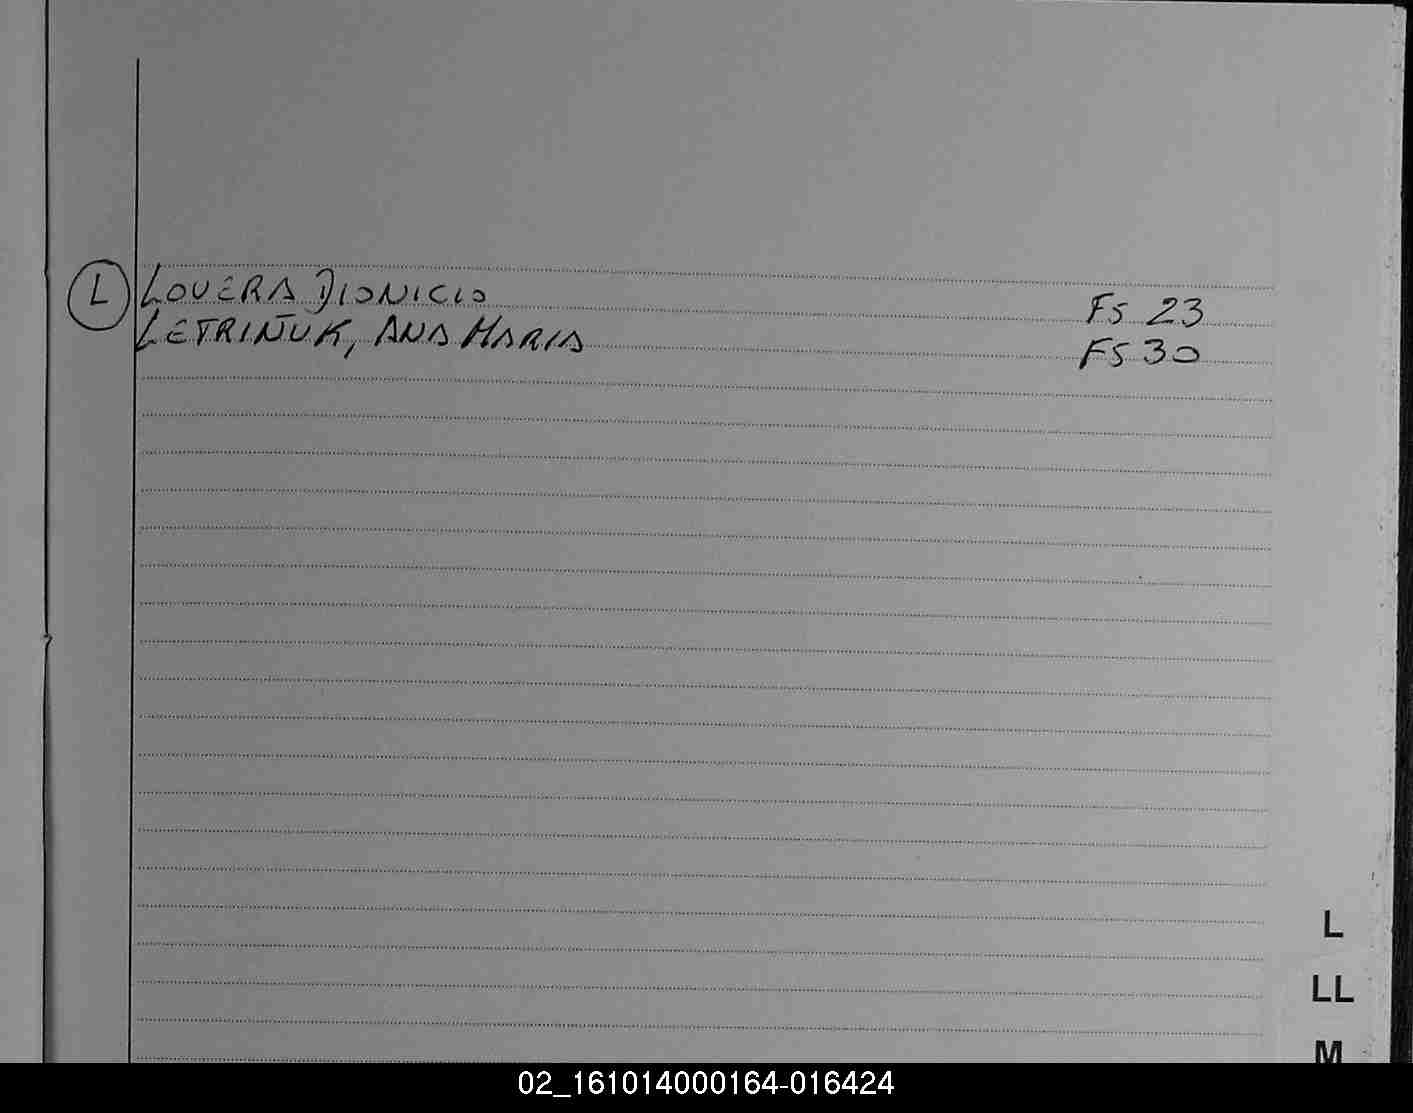 L LOVERA DIONICIO FS 23
LETRIÑUK, ANA MARIA FS 30
L
LL
M
02_161014000164-016424